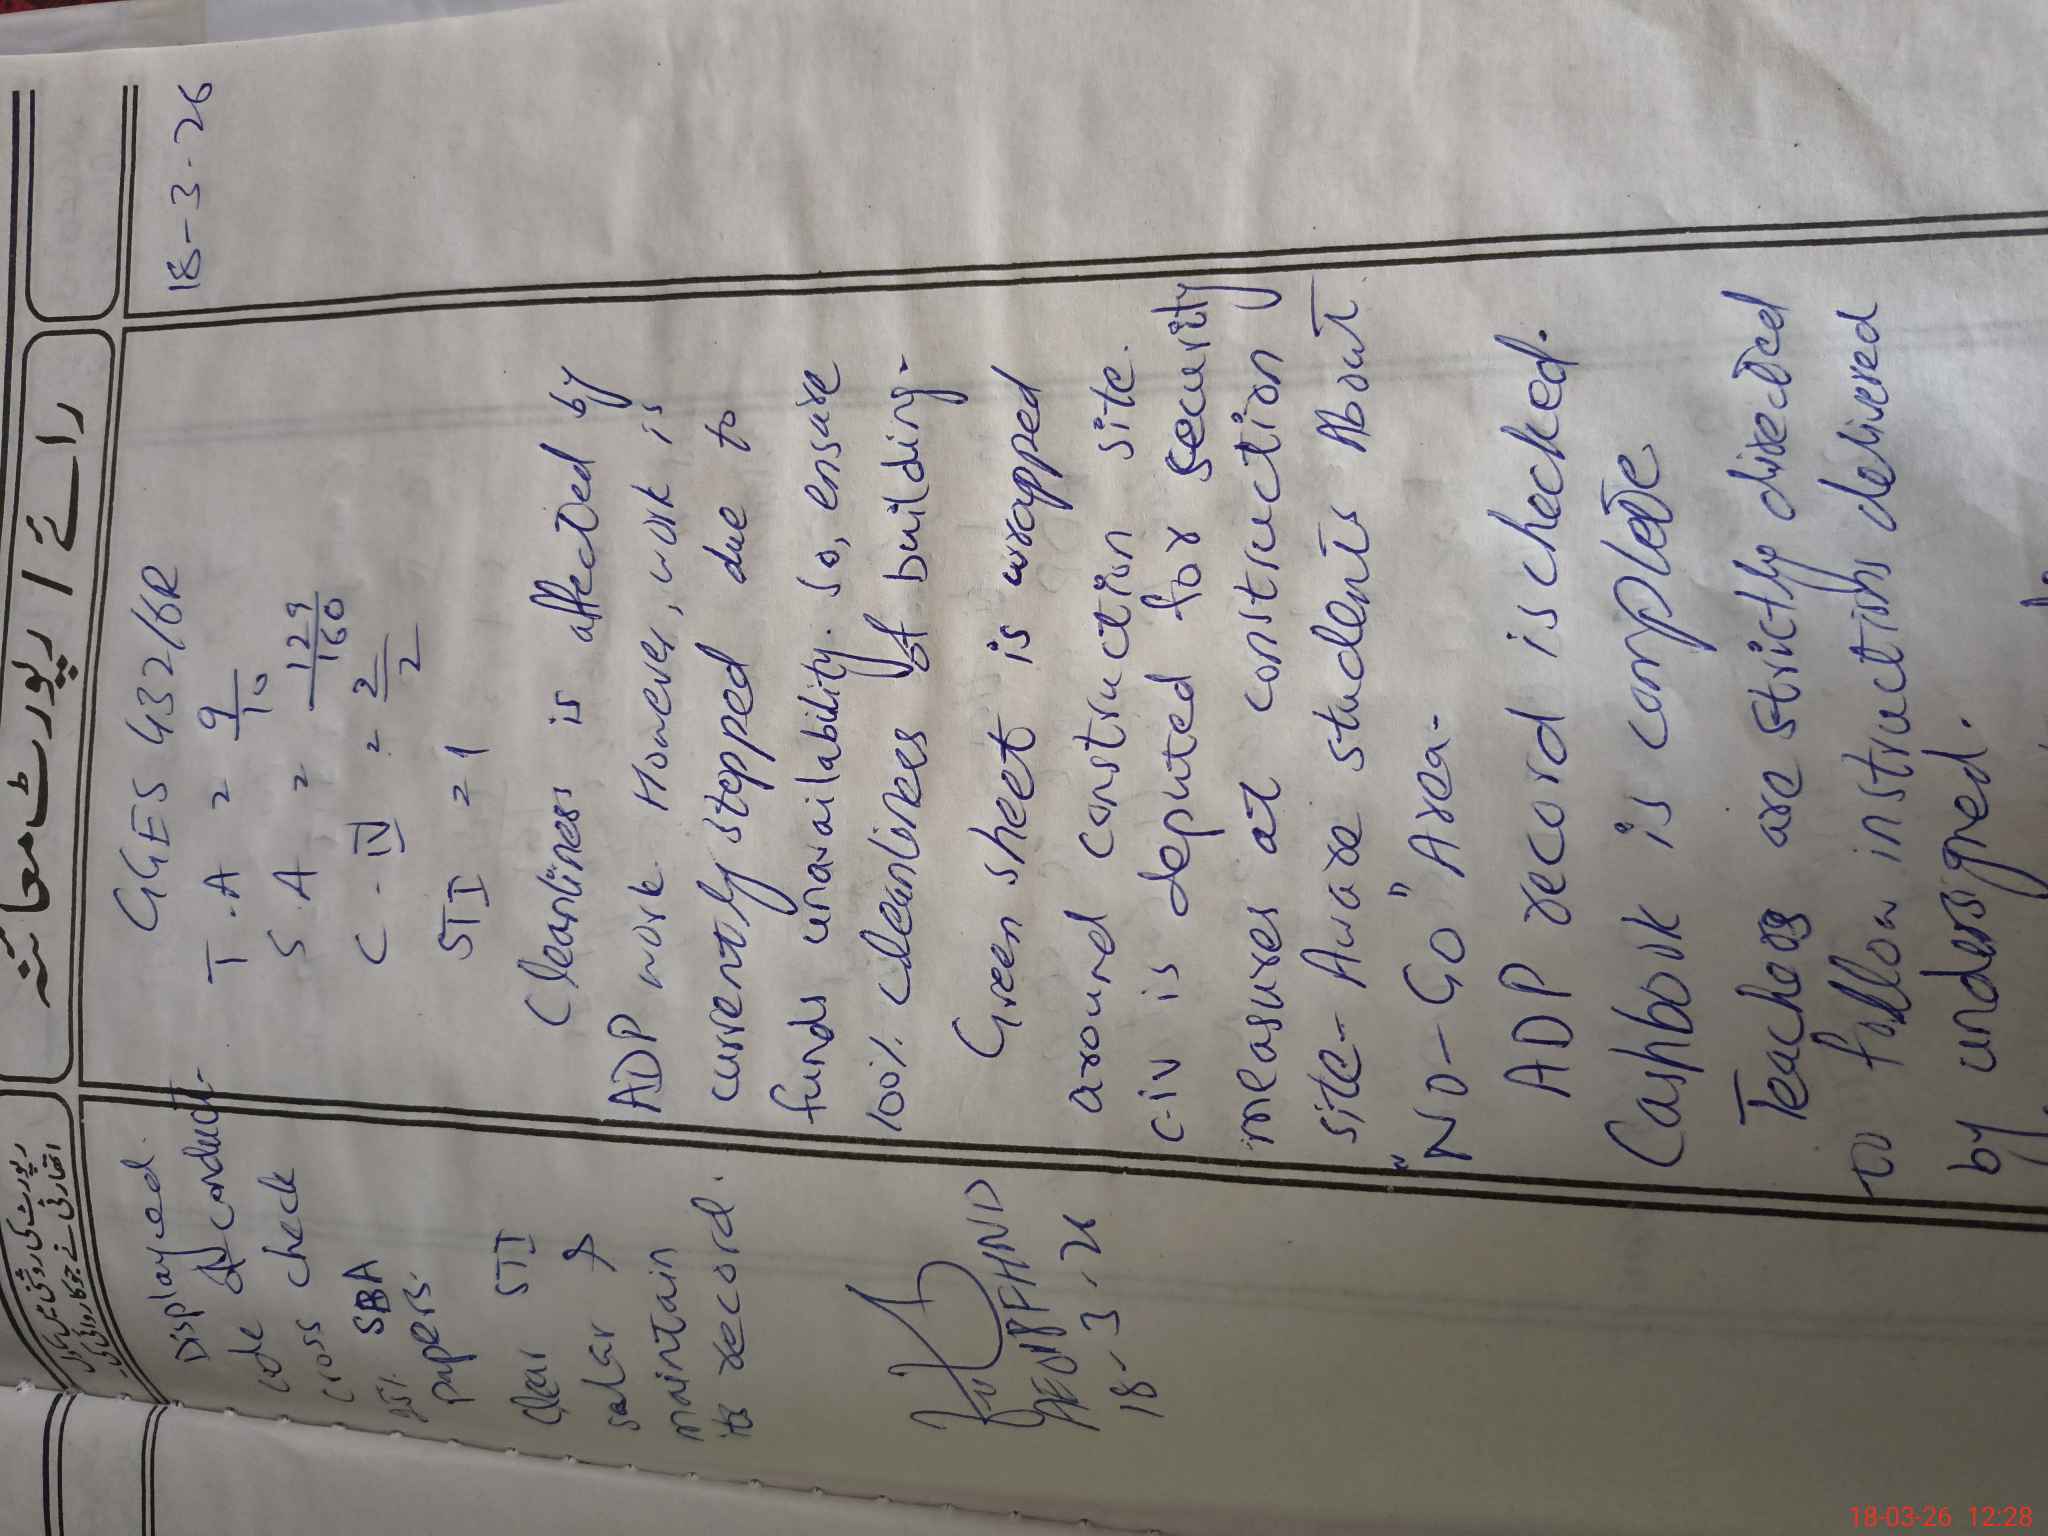 رائے / رپورٹ معائنہ
رپورٹ کی روشنی میں سکول
اتھارٹی نے جو کاروائی کی
18-3-26
GGES 432/6R
T.A = 9/10
S.A = 129/160
C-IV = 2/2
STI = 1
Cleanliness is affected by
ADP work. However, work is
currently stopped due to
funds unavailability. So, ensure
100% cleanlines of building-
Green sheet is wrapped
around construction site.
C-iv is deputed for security
measures at construction
site- Aware students About
"No-Go" Area-
ADP record is checked.
Cashbook is complete
Teachers are strictly directed
to follow instructions delivered
by undersigned.
Displayed
code of conduct-
cross check
25% SBA
papers.
Clear STI
salar &
maintain
its record.
18-3-26
18-03-26 12:28